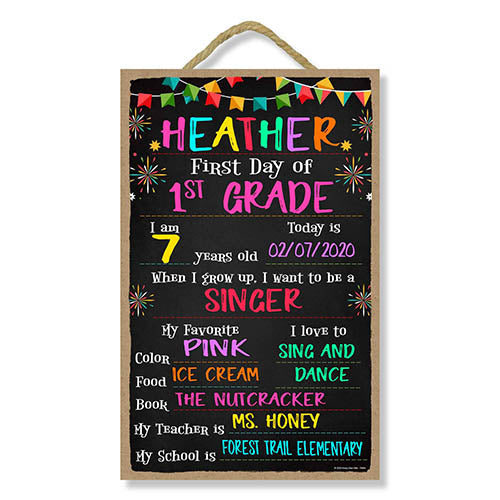 HEATHER
First Day of
1ST GRADE
I am
7 years old
Today is
02/07/2020
When I grow up, I want to be a
SINGER
My Favorite
Color PINK
Food ICE CREAM
I love to
SING AND
DANCE
Book THE NUTCRACKER
My Teacher is MS. HONEY
My School is FOREST TRAIL ELEMENTARY